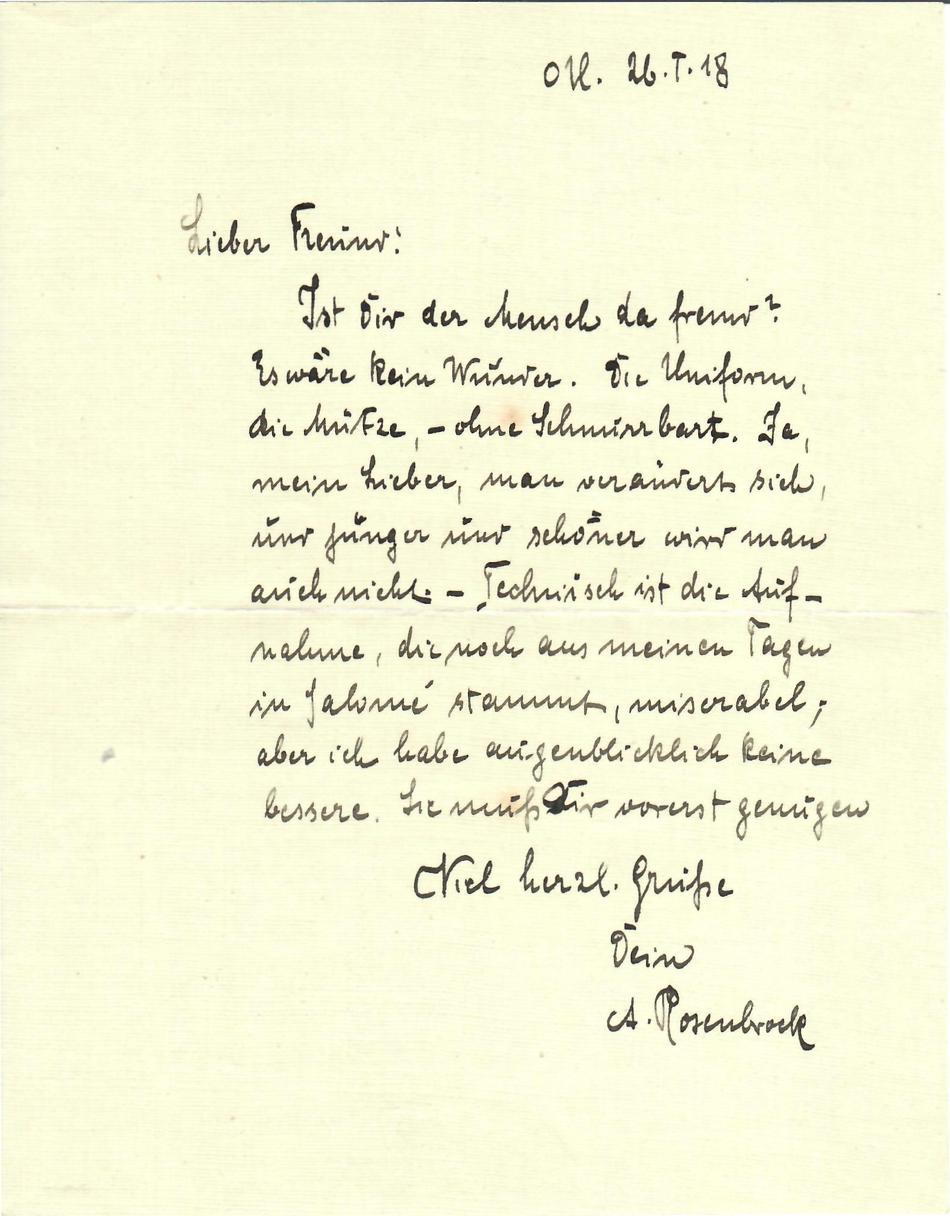 OU. 26.I.18
Lieber Freund!
Ist Dir der Mensch da fremd?
Es wäre kein Wunder. Die Uniform,
die Mütze, – ohne Schnurrbart. Ja,
mein Lieber, man verändert sich,
und jünger und schöner wird man
auch nicht. – Technisch ist die Auf-
nahme, die noch aus meinen Tagen
in Jalomé stammt, miserabel;
aber ich habe augenblicklich keine
bessere. Sie muß Dir vorerst genügen
Viel herzl. Grüße
Dein
A. Rosenbrock